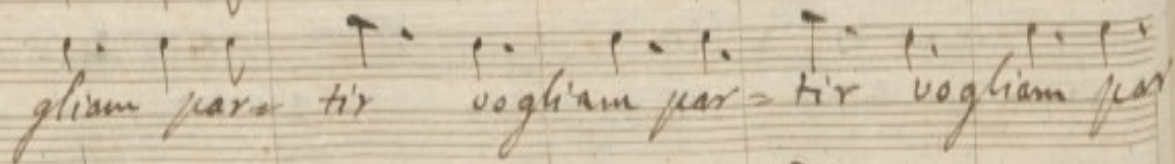 gliam par= tir vogliam par= tir vogliam par